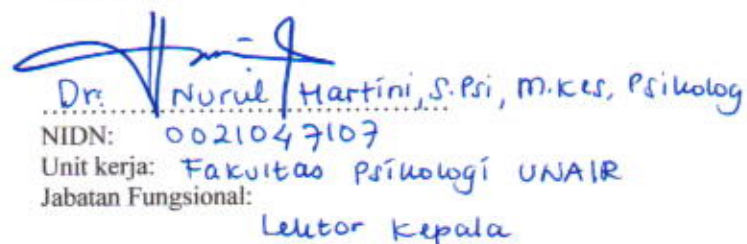 Dr. Nurul Hartini, S.Psi, M.Kes, Psikolog
NIDN: 0021047107
Unit kerja: Fakultas Psikologi UNAIR
Jabatan Fungsional:
Lektor Kepala